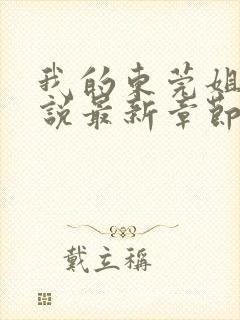 我的东莞姐
說最新章節
戴立稱